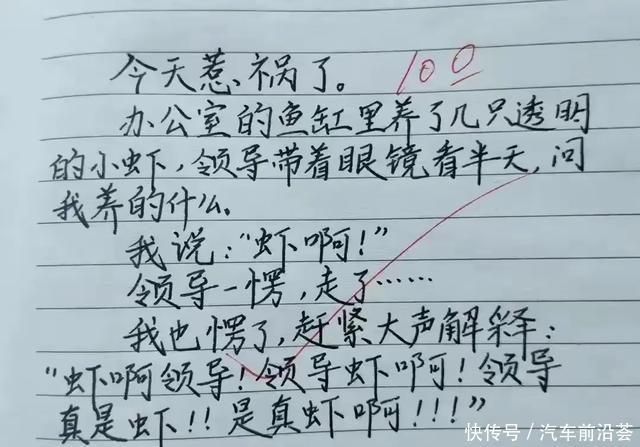 今天惹祸了。 100
办公室的鱼缸里养了几只透明
的小虾，领导带着眼镜看半天，问
我养的什么。
我说："虾啊！"
领导一愣，走了……
我也愣了，赶紧大声解释：
"虾啊领导！领导虾啊！领导
真是虾！！是真虾啊！！！"
快传号／汽车前沿荟